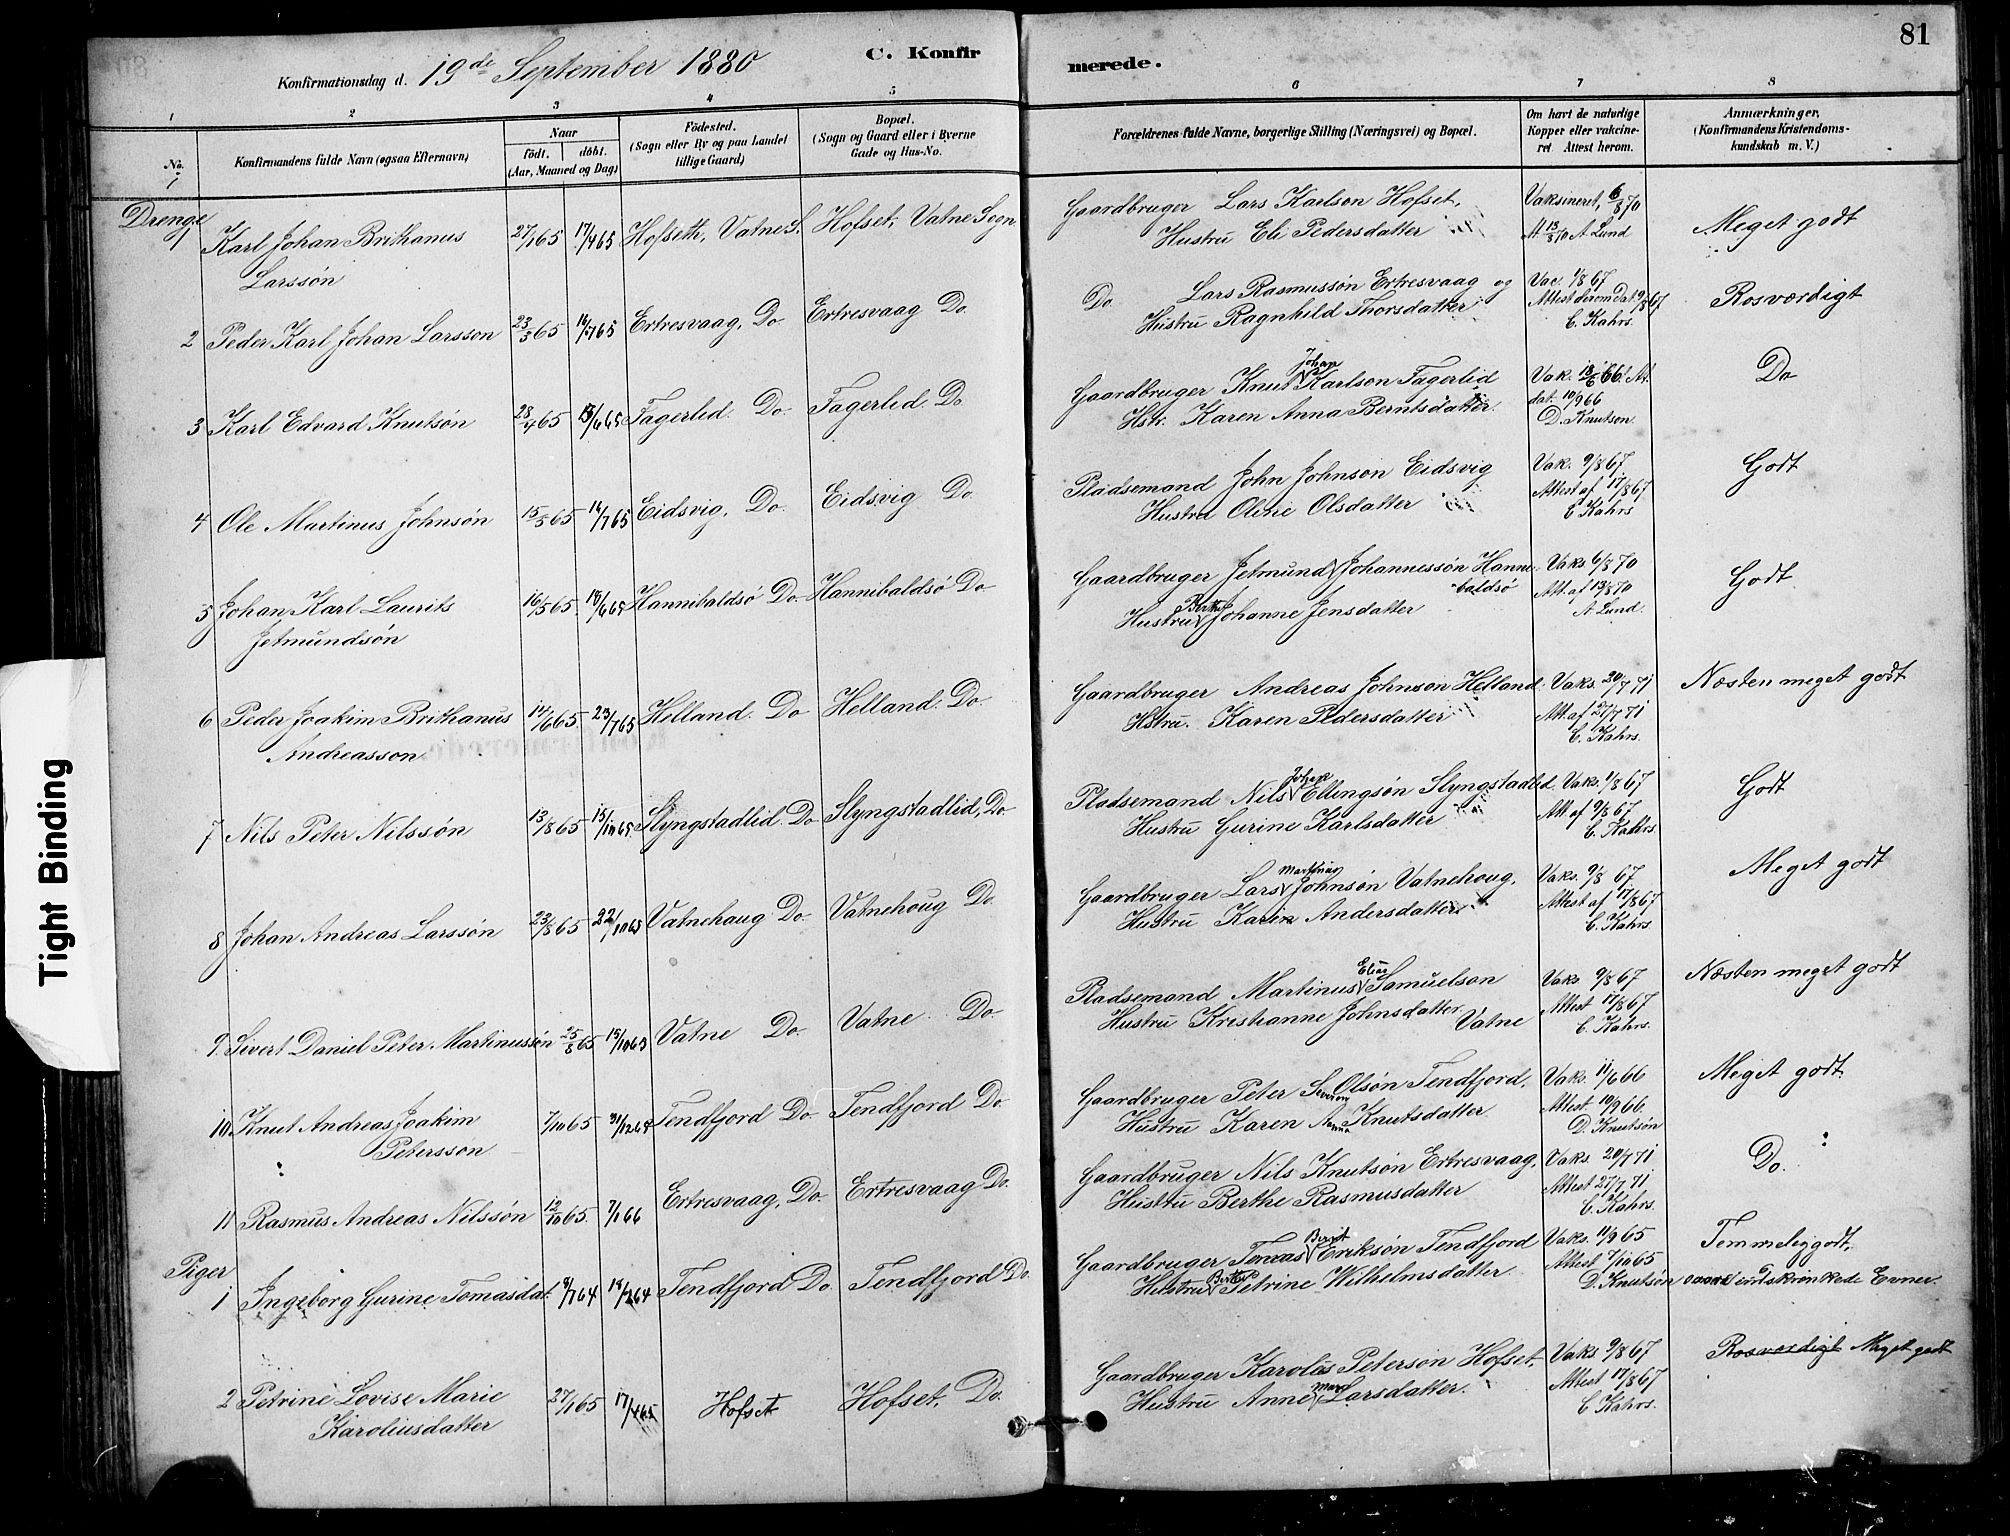 81
C. Konfirmerede.
Konfirmationsdag d. 19de September 1880
1 2 3 4 5 6 7 8
No.
Konfirmandens fulde Navn (ogsaa Efternavn)
Naar
födt. döbt.
(Aar, Maaned og Dag)
Födested.
(Sogn eller By og paa Landet
tillige Gaard)
Bopæl.
(Sogn og Gaard eller i Byerne
Gade og Hus-No.
Forældrenes fulde Navne, borgerlige Stilling (Næringsvei) og Bopæl.
Om havt de naturlige
Kopper eller vakcine-
ret Attest herom.
Anmærkninger,
(Konfirmandens Kristendoms-
kundskab m. V.)
Drenge
1 Karl Johan Brithanus 27/1 65 17/4 65 Hofseth, Vatne S. Hofset, Vatne Sogn
Larssön
Gaardbruger Lars Karlson Hofset, Vaksineret, 6/8 70 Meget godt
Hustru Eli Pedersdatter At. 13/8 70 A. Lund
2 Peder Karl Johan Larsson 23/3 65 16/7 65 Ertresvaag, Do Ertresvaag Do.
Do. Lars Rasmussön Ertresvaag og Vac. 1/8 67 Rosværdigt
Hustru Ragnhild Thorsdatter Attest derom Dat. 9/8 67
C. Kahrs.
3 Karl Edvard Knutsön 28/4 65 13/6 65 Fagerlid. Do. Fagerlid. Do
Gaardbruger Knut Johan Karlson Fagerlid Vak. 13/6 66. At. Do
Hstr. Karen Anna Berntsdatter. dat. 10/9 66
D. Knutson.
4 Ole Martinus Johnsön 15/5 65 16/7 65 Eidsvig, Do. Eidsvig Do
Pladsemand John Johnson Eidsvig Vak. 9/8 67. Godt
Hustru Oline Olsdatter Attest af 17/8 67
C Kahrs
5 Johan Karl Laurits 16/5 65 18/6 65 Hannibaldsö Do. Hannibaldsö Do
Jetmundsön
Gaardbruger Jetmund Johannessön Hanni- Vaks 6/8 70 Godt
baldsö Att. af 13/8 70
Hustru Berthe Johanne Jensdatter A. Lund.
6 Peder Joakim Brithanus 14/6 65. 23/7 65 Helland. Do Helland. Do.
Andreasson
Gaardbruger Andreas Johnson Helland. Vaks. 20/7 71 Næsten meget godt
Hstru. Karen Pedersdatter Att. af 27/7 71
C. Kahrs.
7 Nils Peter Nilssön 13/8 65 15/10 65. Slyngstadlid. Do Slyngstadlid, Do
Pladsemand Nils Johan Ellingsön Slyngstadlid Vaks. 1/8 67 Godt
Hustru Gurine Karlsdatter Att af 9/8 67.
C. Kahrs.
8 Johan Andreas Larssön 23/8 65 22/10 65 Vatnehaug Do. Vatnehoug Do
Gaardbruger Lars Martinus Johnsön Vatnehoug. Vaks. 9/8 67 Meget godt
Hustru Karin Andersdatter Attest af 17/8 67
C. Kahrs.
9 Sivert Daniel Peter Martinussön 25/8 65 15/10 65 Vatne Do. Vatne Do.
Pladsemand Martinus Elias Samuelson Vaks. 9/8 67 Næsten meget godt
Hustru Kristianne Johnsdatter Vatne Attest 17/8 67
C. Kahrs.
10 Knut Andreas Joakim 7/10 65 31/12 65 Tendfjord Do Tendfjord Do.
Petersson
Gaardbruger Peter Severin Olsön Tendfjord. Vaks. 11/6 66 Meget godt.
Hustru Karen Anna Knutsdatter Attest 10/9 66.
D. Knutsön
11 Rasmus Andreas Nilssön 12/10 65. 7/1 66 Ertresvaag, Do. Ertresvaag Do.
Gaardbruger Nils Knutsön Ertresvaag, Vaks. 20/7 71 Do.
Hustru Berthe Rasmusdatter Attest 27/7 71.
C. Kahrs.
Piger
1 Ingeborg Gurine Tomasdat. Tendfjord Do. Tendfjord Do.
Gaardbruger Tomas Bernt Eriksön Tendfjord Vaks. 11/9 65 Temmelig godt,
Hustru Berthe Petrine Wilhelmsdatter. Attest 7/10 65
D. Knutsön indskrænkede Evner.
2 Petrine Lovise Marie 27/1 65 17/4 65 Hofset Hofset, Do.
Karoliusdatter
Gaardbruger Karolus Peterson Hofset. Vaks 9/8 67 Rosværdigt Meget godt
Hustru Anne Larsdatter. Attest 17/8 67
C Kahrs.
Tight Binding